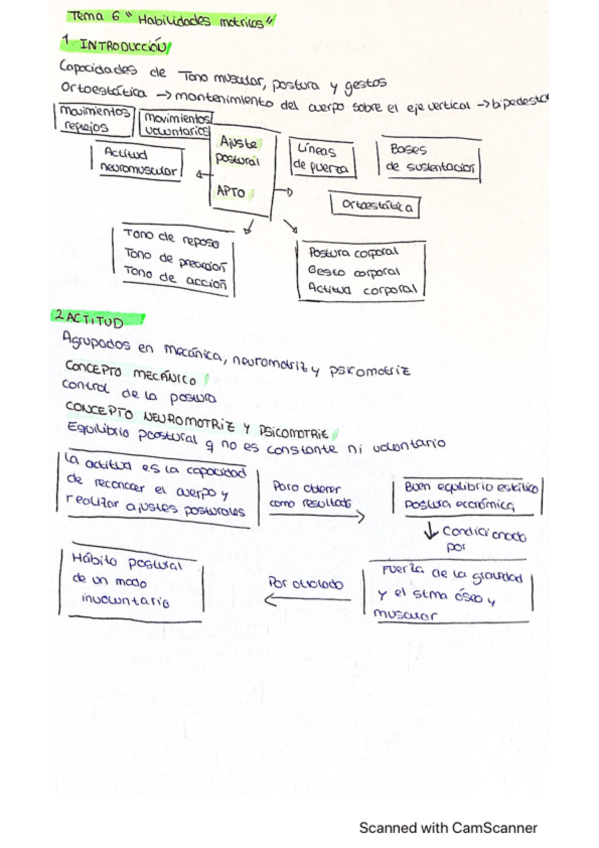 Tema 6 "Habilidades motrices"
1. INTRODUCCIÓN
Capacidades de Tono muscular, postura y gestos
Ortoestática → mantenimiento del cuerpo sobre el eje vertical → bipedesta
movimientos reflejos
movimientos voluntarios
Ajuste postural
APTO
Líneas de fuerza
Bases de sustentación
Actitud neuromuscular
Ortoestática
Tono de reposo
Tono de preacción
Tono de acción
Postura corporal
Gesto corporal
Actitud corporal
2 ACTITUD
Agrupados en mecánica, neuromotriz y psicomotriz
CONCEPTO MECÁNICO
Control de la postura
CONCEPTO NEUROMOTRIZ Y PSICOMOTRIZ
Equilibrio postural q no es constante ni voluntario
La actitud es la capacidad
de reconocer el cuerpo y
realizar ajustes posturales
Para obtener
como resultado
Buen equilibrio estático
postura económica
Condicionado
por
Fuerza de la gravedad
y el stma óseo y
muscular
Hábito postural
de un modo
involuntario
Scanned with CamScanner